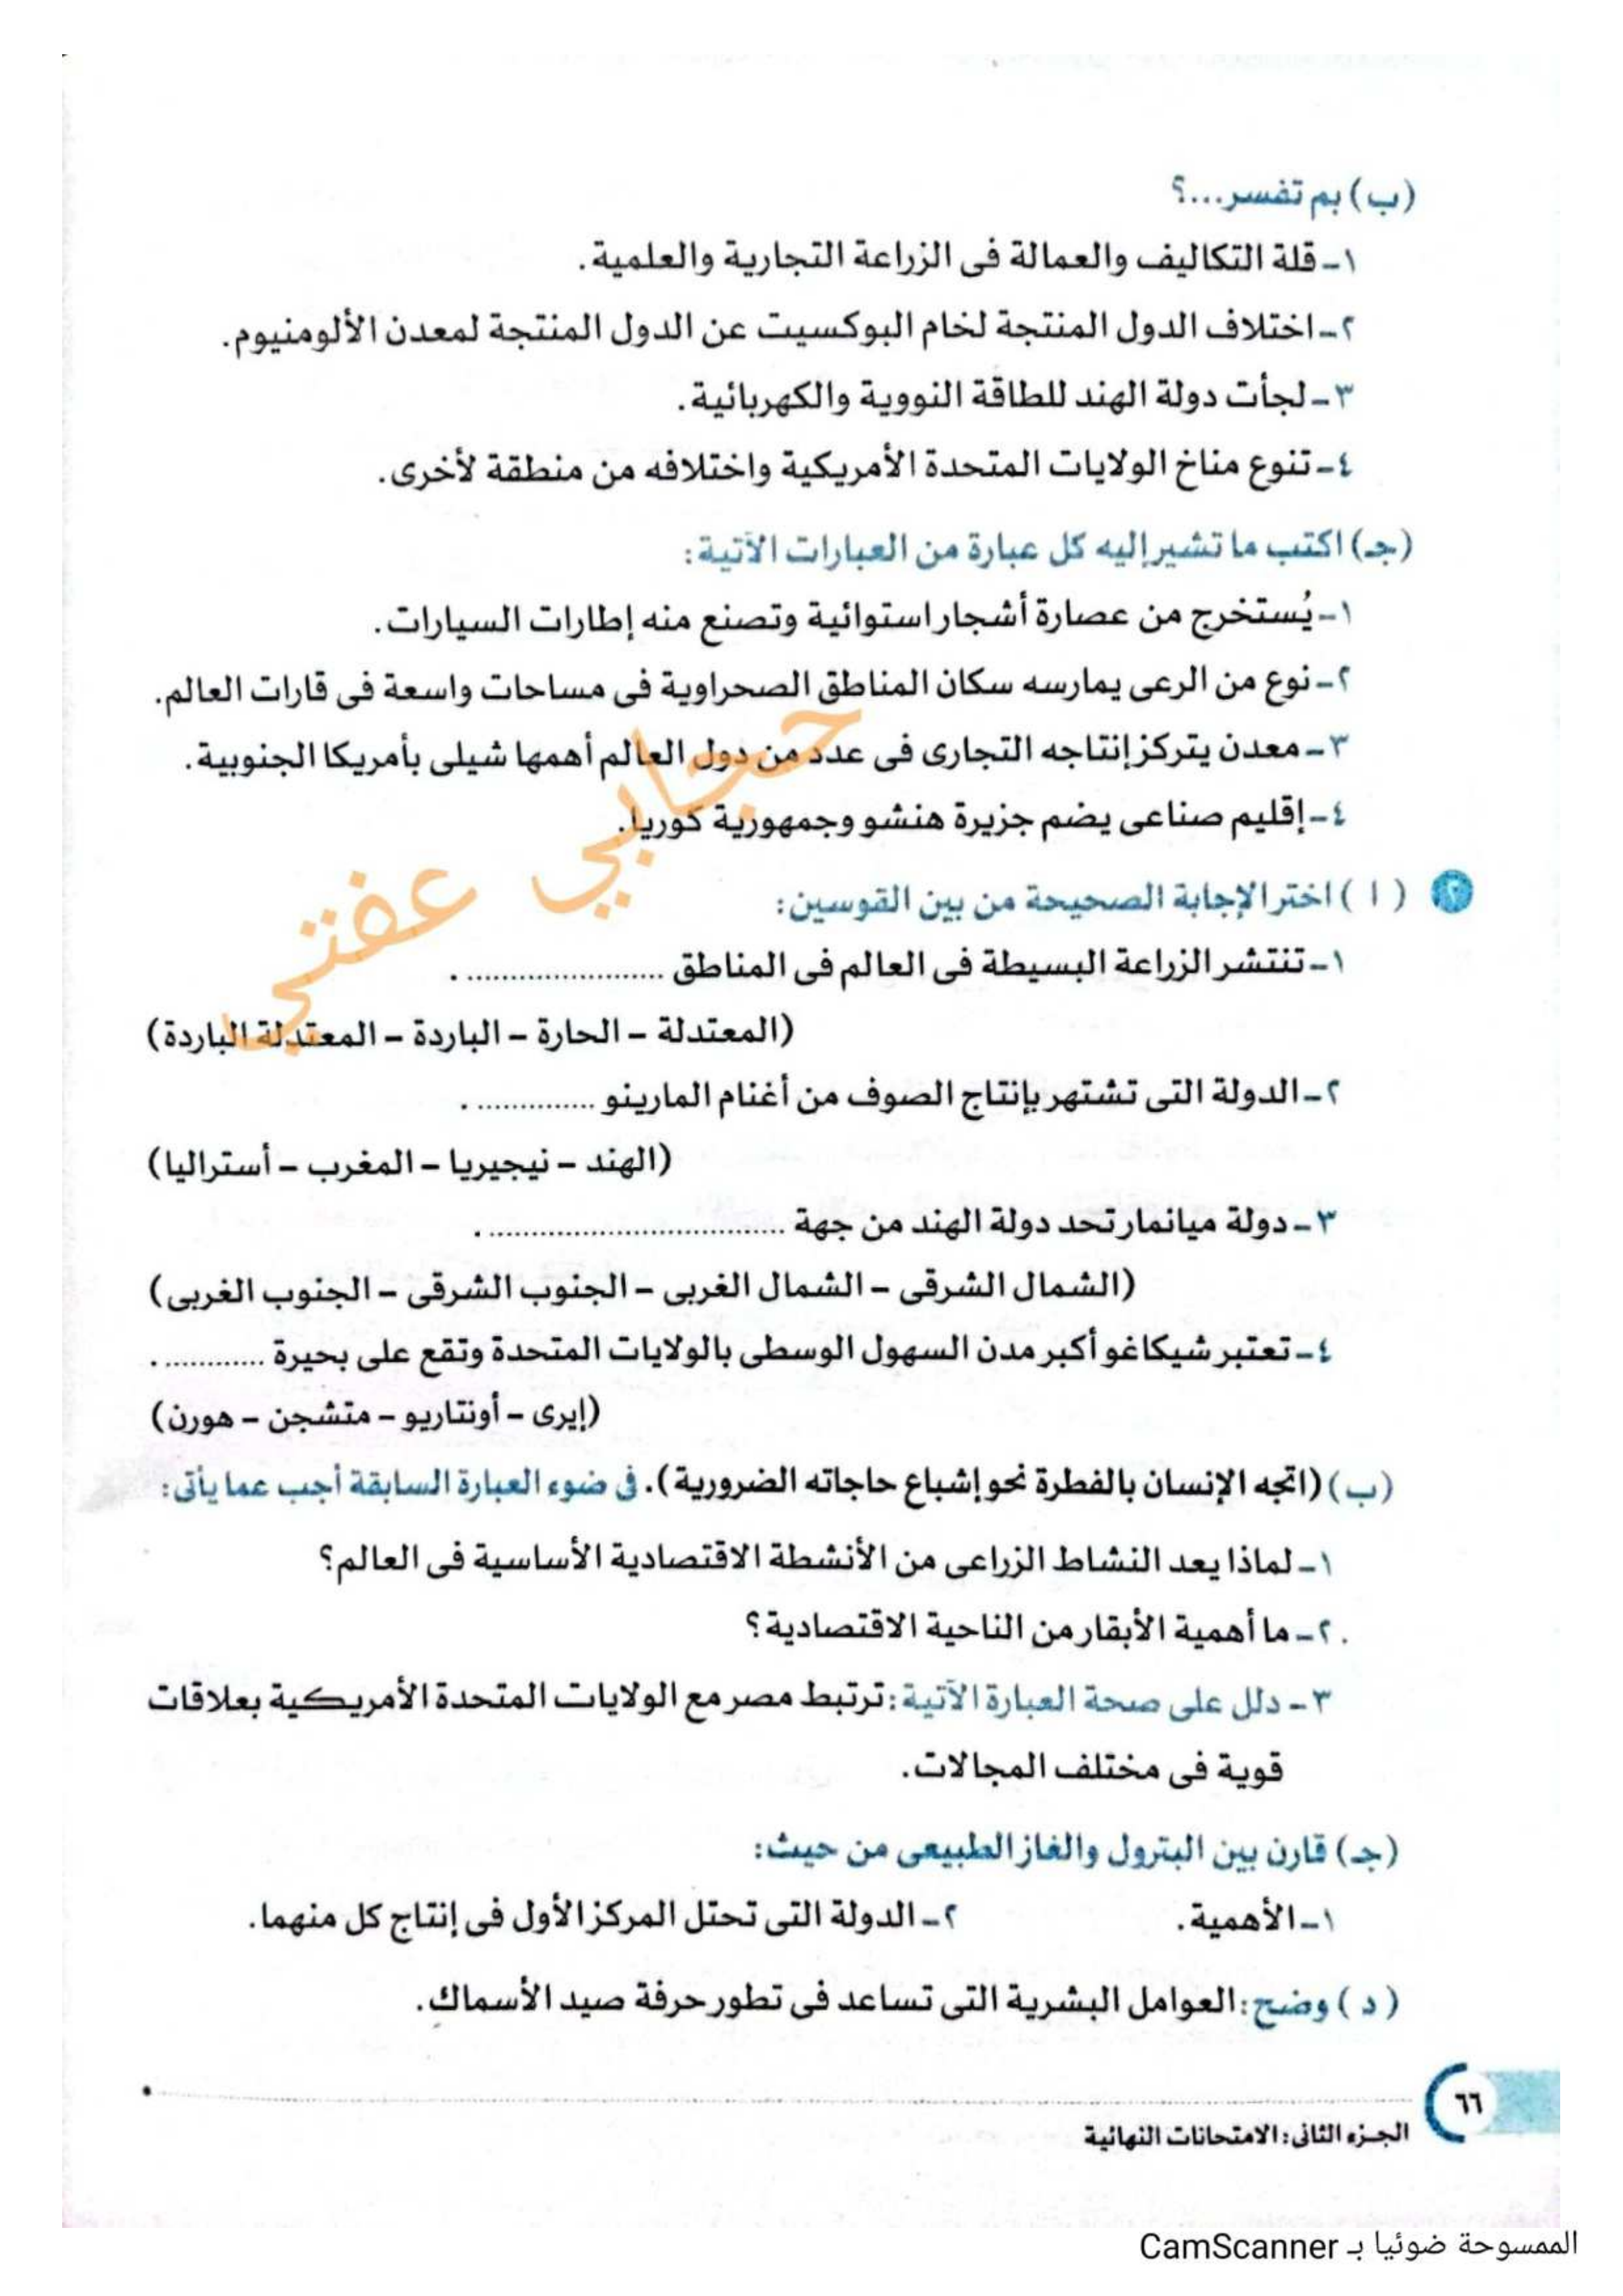 (ب) بم تفسر...؟
١- قلة التكاليف والعمالة فى الزراعة التجارية والعلمية.
٢- اختلاف الدول المنتجة لخام البوكسيت عن الدول المنتجة لمعدن الألومنيوم.
٣- لجأت دولة الهند للطاقة النووية والكهربائية.
٤- تنوع مناخ الولايات المتحدة الأمريكية واختلافه من منطقة لأخرى.
(جـ) اكتب ما تشير إليه كل عبارة من العبارات الآتية:
١- يُستخرج من عصارة أشجار استوائية وتصنع منه إطارات السيارات.
٢- نوع من الرعى يمارسه سكان المناطق الصحراوية فى مساحات واسعة فى قارات العالم.
٣- معدن يتركز إنتاجه التجارى فى عدد من دول العالم أهمها شيلى بأمريكا الجنوبية.
٤- إقليم صناعى يضم جزيرة هنشو وجمهورية كوريا.
حجابي عفتي
٢ ( ا ) اختر الإجابة الصحيحة من بين القوسين:
١- تنتشر الزراعة البسيطة فى العالم فى المناطق ...................... .
(المعتدلة - الحارة - الباردة - المعتدلة الباردة)
٢- الدولة التى تشتهر بإنتاج الصوف من أغنام المارينو .............. .
(الهند - نيجيريا - المغرب - أستراليا)
٣- دولة ميانمار تحد دولة الهند من جهة ................................. .
(الشمال الشرقى - الشمال الغربى - الجنوب الشرقى - الجنوب الغربى)
٤- تعتبر شيكاغو أكبر مدن السهول الوسطى بالولايات المتحدة وتقع على بحيرة ............ .
(إيرى - أونتاريو - متشجن - هورن)
(ب) (اتجه الإنسان بالفطرة نحو إشباع حاجاته الضرورية). فى ضوء العبارة السابقة أجب عما يأتى:
١- لماذا يعد النشاط الزراعى من الأنشطة الاقتصادية الأساسية فى العالم؟
٢- ما أهمية الأبقار من الناحية الاقتصادية؟
٣- دلل على صحة العبارة الآتية: ترتبط مصر مع الولايات المتحدة الأمريكية بعلاقات
قوية فى مختلف المجالات.
(جـ) قارن بين البترول والغاز الطبيعى من حيث:
١- الأهمية. ٢- الدولة التى تحتل المركز الأول فى إنتاج كل منهما.
( د ) وضح: العوامل البشرية التى تساعد فى تطور حرفة صيد الأسماك.
٦٦
الجزء الثانى: الامتحانات النهائية
الممسوحة ضوئيا بـ CamScanner